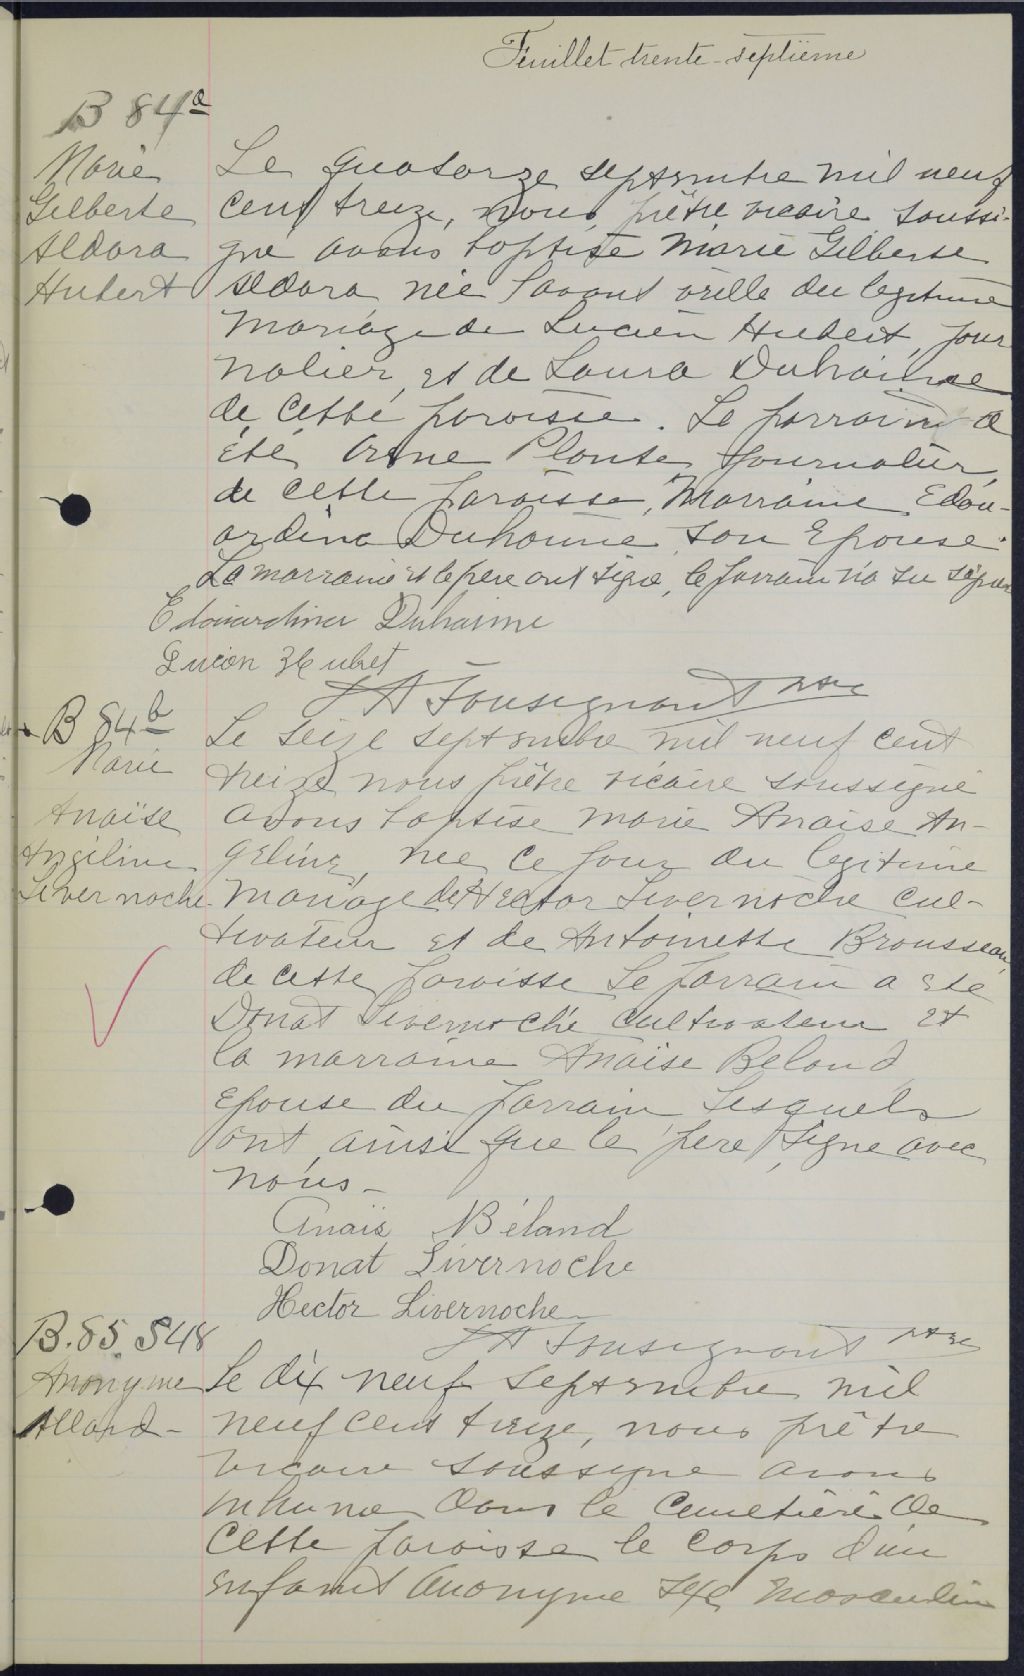 Feuillet trente-septième
B 84a
Marie
Gilberte
Aldora
Hubert
Le quatorze septembre mil neuf
cent treize, nous, prêtre vicaire soussi-
gné avons baptisé Marie Gilberte
Aldora née l'avant veille du légitime
mariage de Lucien Hubert, jour
nalier, et de Laura Duhaime
de cette paroisse. Le parrain a
été Plante journalier
de cette paroisse, Marraine Edou-
ardina Duhaime son Epouse.
La marraine et le père ont signé, le parrain n'a su signer
Edouardina Duhaime
Lucien Hubret
JA Tousignant ptre
B 84b
Marie
Anaïse
Angelina
Livernoche
Le seize septembre mil neuf cent
treize nous prêtre vicaire soussigné
avons baptisé Marie Anaise An-
gelina, née ce jour du légitime
mariage de Hector Livernoche cul-
tivateur et de Antoinette Brousseau,
de cette paroisse Le parrain a été
Donat Livernoche cultivateur et
la marraine Anaïse Beland
Epouse du parrain Lesquels
ont ainsi que le père signé avec
nous-
Anaïs Béland
Donat Livernoche
Hector Livernoche
JA Tousignant ptre
B.85 S48
Anonyme
Allard-
Le dix neuf septembre mil
neuf cent treize, nous prêtre
vicaire soussigné avons
inhumé dans le cimetière de
cette paroisse le corps d'un
enfant anonyme sexe masculin